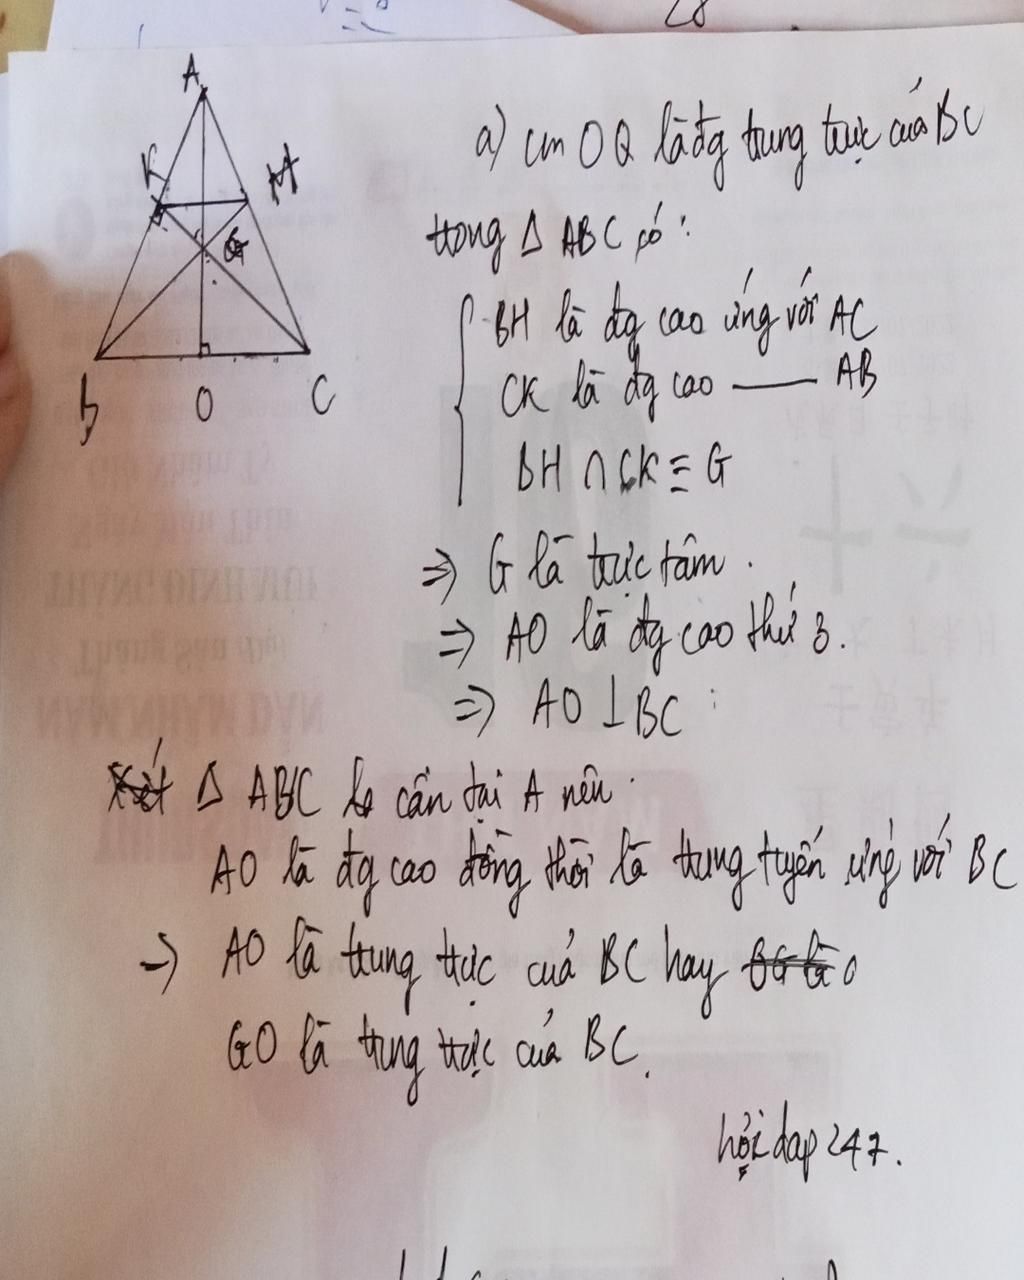 A
K
H
G
B
O
C
a) cm OQ là đg trung trực của BC
trong Δ ABC có:
BH là đg cao ứng với AC
CK là đg cao —— AB
BH ∩ CK ≡ G
=> G là trực tâm.
=> AO là đg cao thứ 3.
=> AO ⊥ BC
Δ ABC cân tại A nên
AO là đg cao đồng thời là trung tuyến ứng với BC
-> AO là trung trực của BC hay
GO là trung trực của BC.
hỏi đap 247.